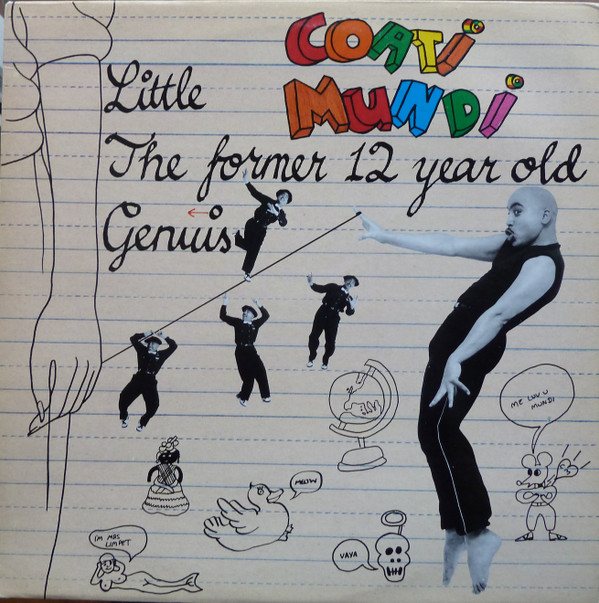 COATI
MUNDI
Little
The former 12 year old
Genius
ME LUV U
MUNDI
MEOW
I'M MRS
LIMPET
VAYA